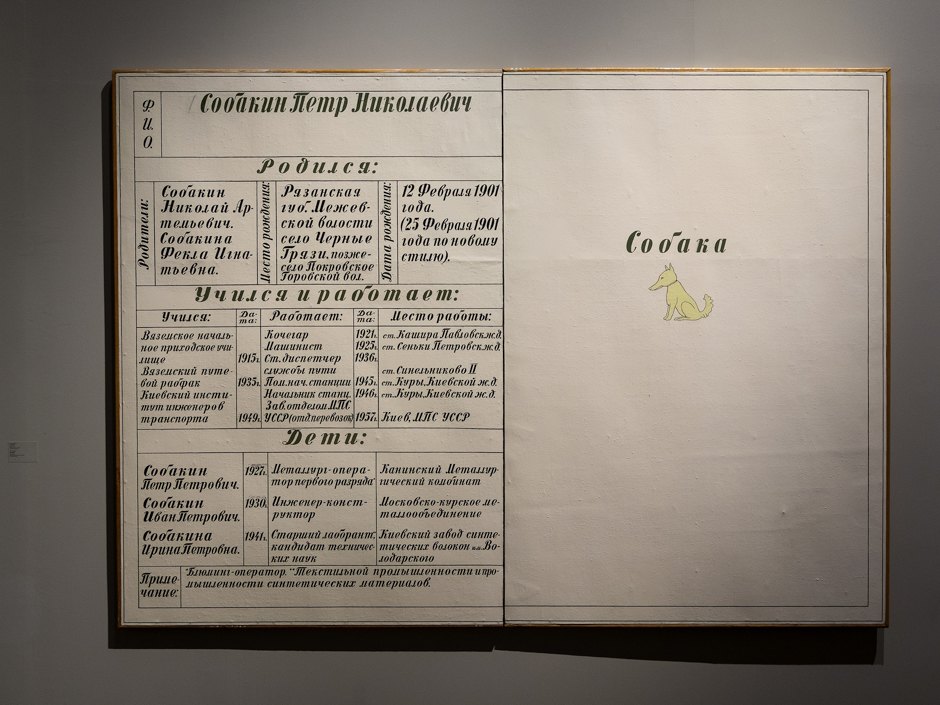 Ф.
И.
О.
Собакин Петр Николаевич
Родился:
Родители:
Собакин
Николай Ар-
тельевич.
Собакина
Фекла Игна-
тьевна.
Место рождения:
Рязанская
губ. Межев-
ской волости
село Черные
Грязи, позже-
село Покровское
Горовской вол.
Дата рождения:
12 Февраля 1901
года.
(25 Февраля 1901
года по новому
стилю).
Учился и работает:
Учился:
Да-
та:
Работает:
Да-
та:
Место работы:
Вяземское началь-
ное приходское учи-
лище 1915г.
Вяземский путе-
вой рабфак 1935г.
Киевский инсти-
тут инженеров
транспорта 1949г.
Кочегар 1921г. ст. Кашира Павловск.ж.д.
Машинист 1925г. ст. Сеньки Петровск.ж.д.
Ст. диспетчер 1936г.
службы пути ст. Синельниково II
Пом. нач. станции 1945г. ст. Куры, Киевской ж.д.
Начальник станц. 1946г. ст. Куры, Киевской ж.д.
Зав. отделом МПС
УССР (отд. перевозок) 1957г. Киев, МПС УССР
Дети:
Собакин
Петр Петрович.
1927г.
Металлург-опера-
тор первого разряда
Канинский Металлур-
гический комбинат
Собакин
Иван Петрович.
1930.
Инженер-конст-
руктор
Московско-курское ме-
таллообъединение
Собакина
Ирина Петровна.
1941г.
Старший лаборант,
кандидат техничес-
ких наук
Киевский завод синте-
тических волокон им. Во-
лодарского
Приме-
чание:
Блюминг-оператор. Текстильной промышленности и про-
мышленности синтетических материалов.
Собака